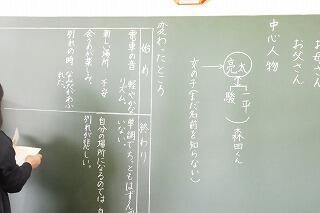 お母さん
お父さん
中心人物
亮太
一平
駿
森田くん
女の子(まだ名前を知らない)
変わったところ
始め
電車の音 軽やかな
リズム。
新しい場所 不安
会うのが楽しみ。
別れの時
終わり
単調でちっともはずんで
いない。
自分の場所になるのでは
別れが悲しい。